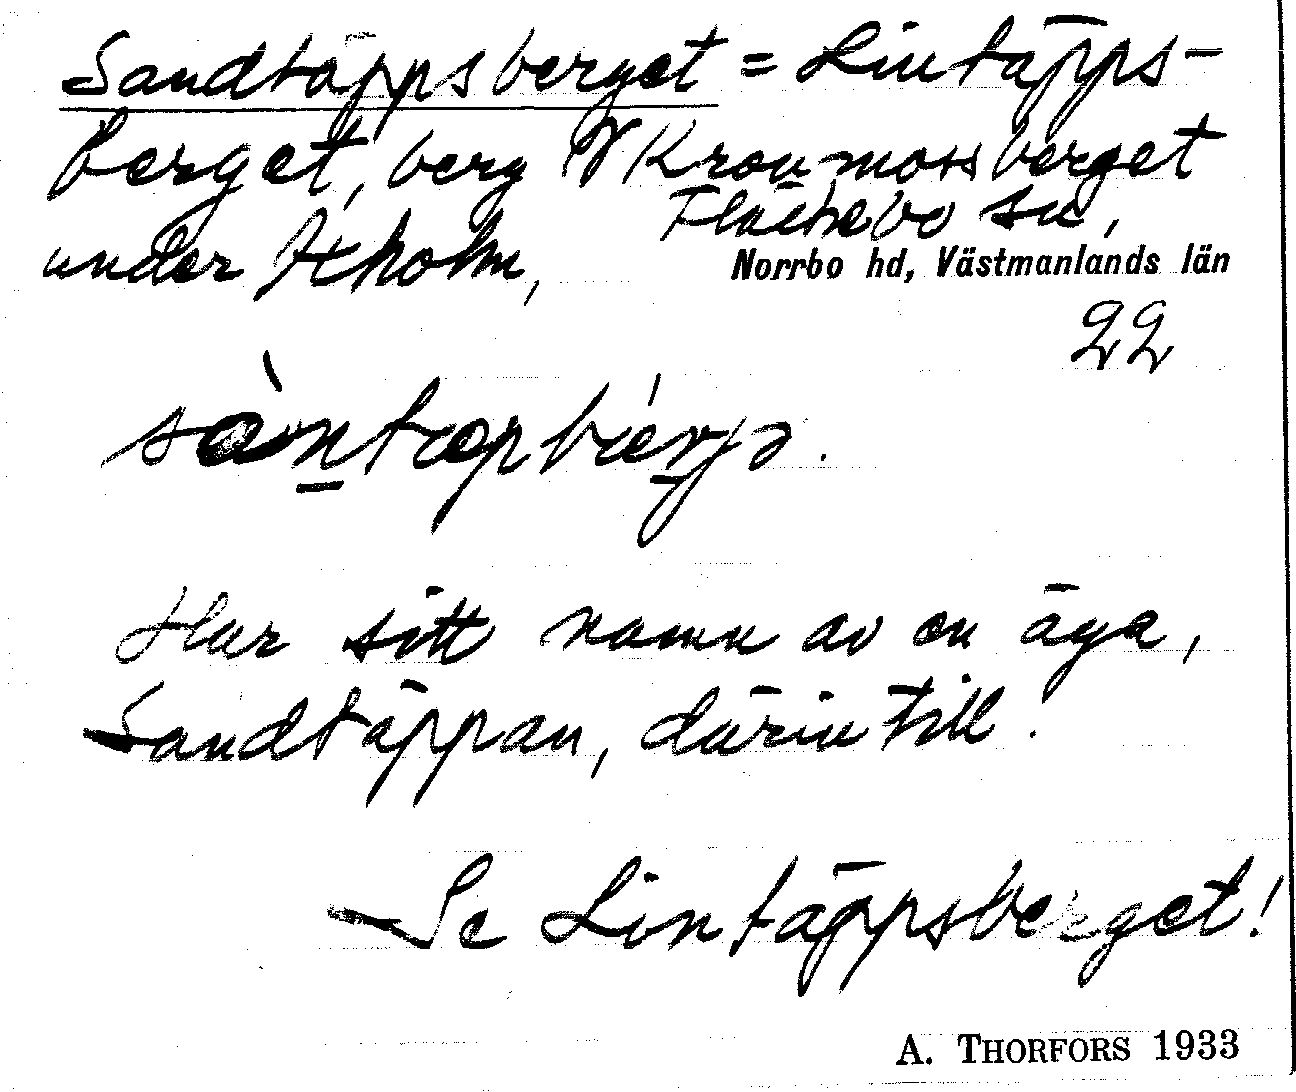 Sandtäppsberget = Lintäpps-
berget, berg V Kronmossberget
under Axholm,
Fläckebo sn,
Norrbo hd, Västmanlands län
22
sàntæpbǽrjə.
Har sitt namn av en äga,
Sandtäppan, därin till.
Se Lintäppsberget!
A. THORFORS 1933